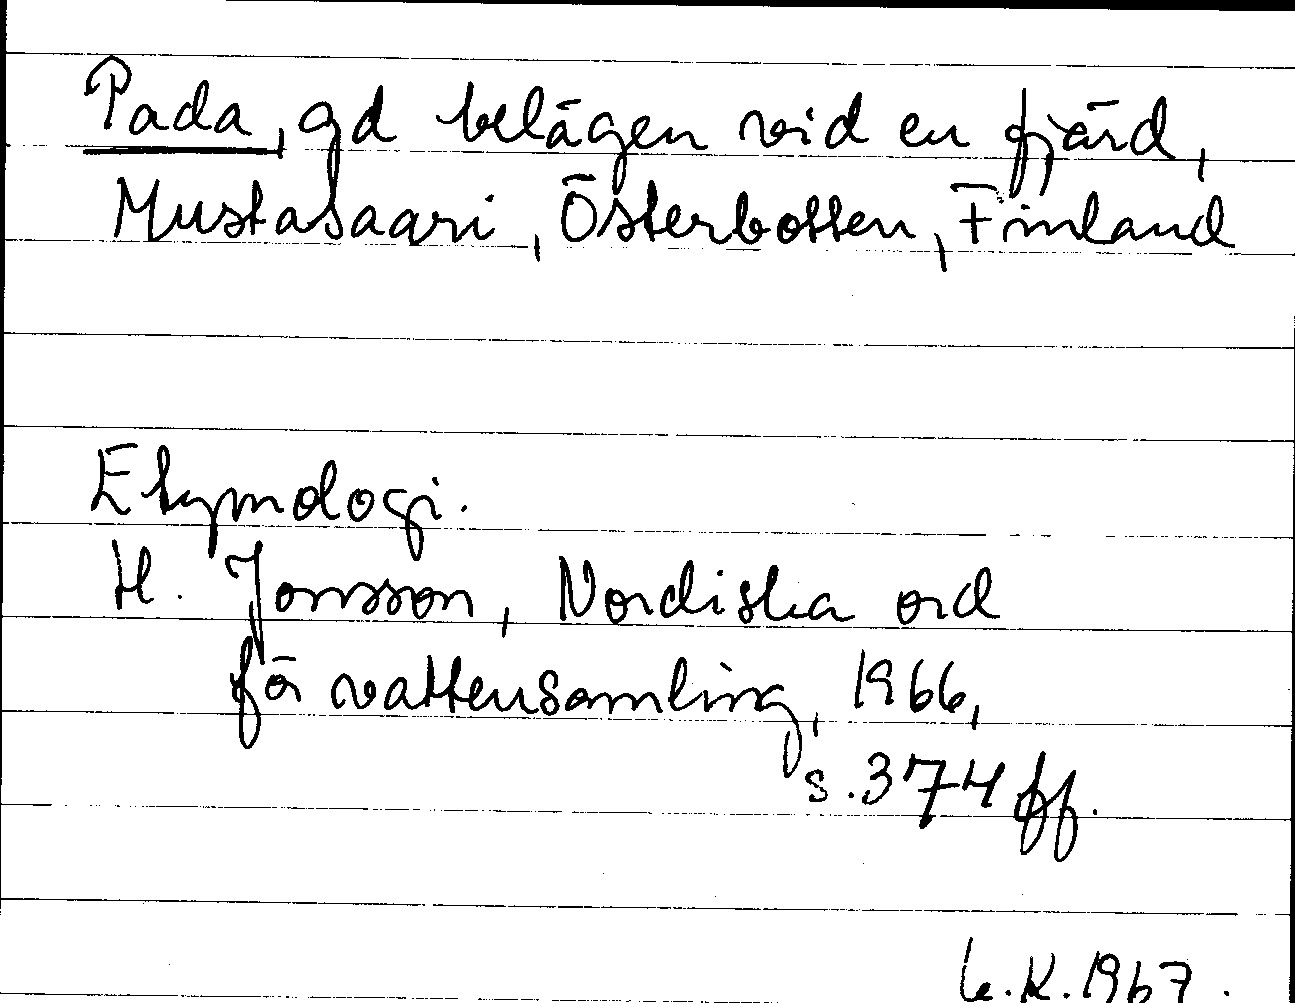 Pada, gd belägen vid en fjärd,
Mustasaari, Österbotten, Finland
Etymologi.
H. Jonsson, Nordiska ord
för vattensamling, 1966,
s. 374 ff.
K. 1967.